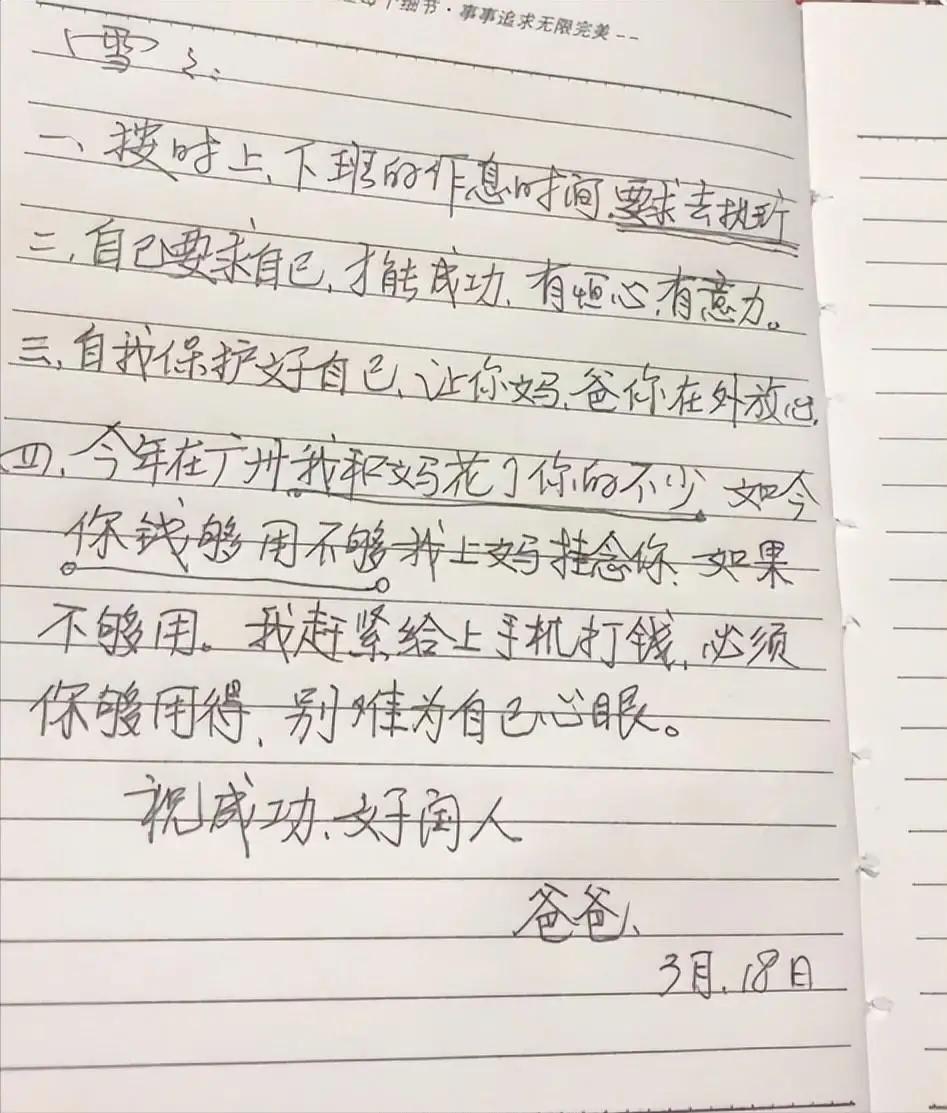 个细节·事事追求无限完美--
雪:
一、按时上、下班的作息时间,要求去执行
二、自己要求自己,才能成功、有恒心,有意力。
三、自我保护好自己、让你妈、爸你在外放心,
四、今年在广州我和妈花了你的不少 如今
你钱够用不够我上妈挂念你、如果
不够用。我赶紧给上手机打钱,必须
你够用得,别难为自己心眼。
祝成功、好闺人
爸爸、
3月、18日